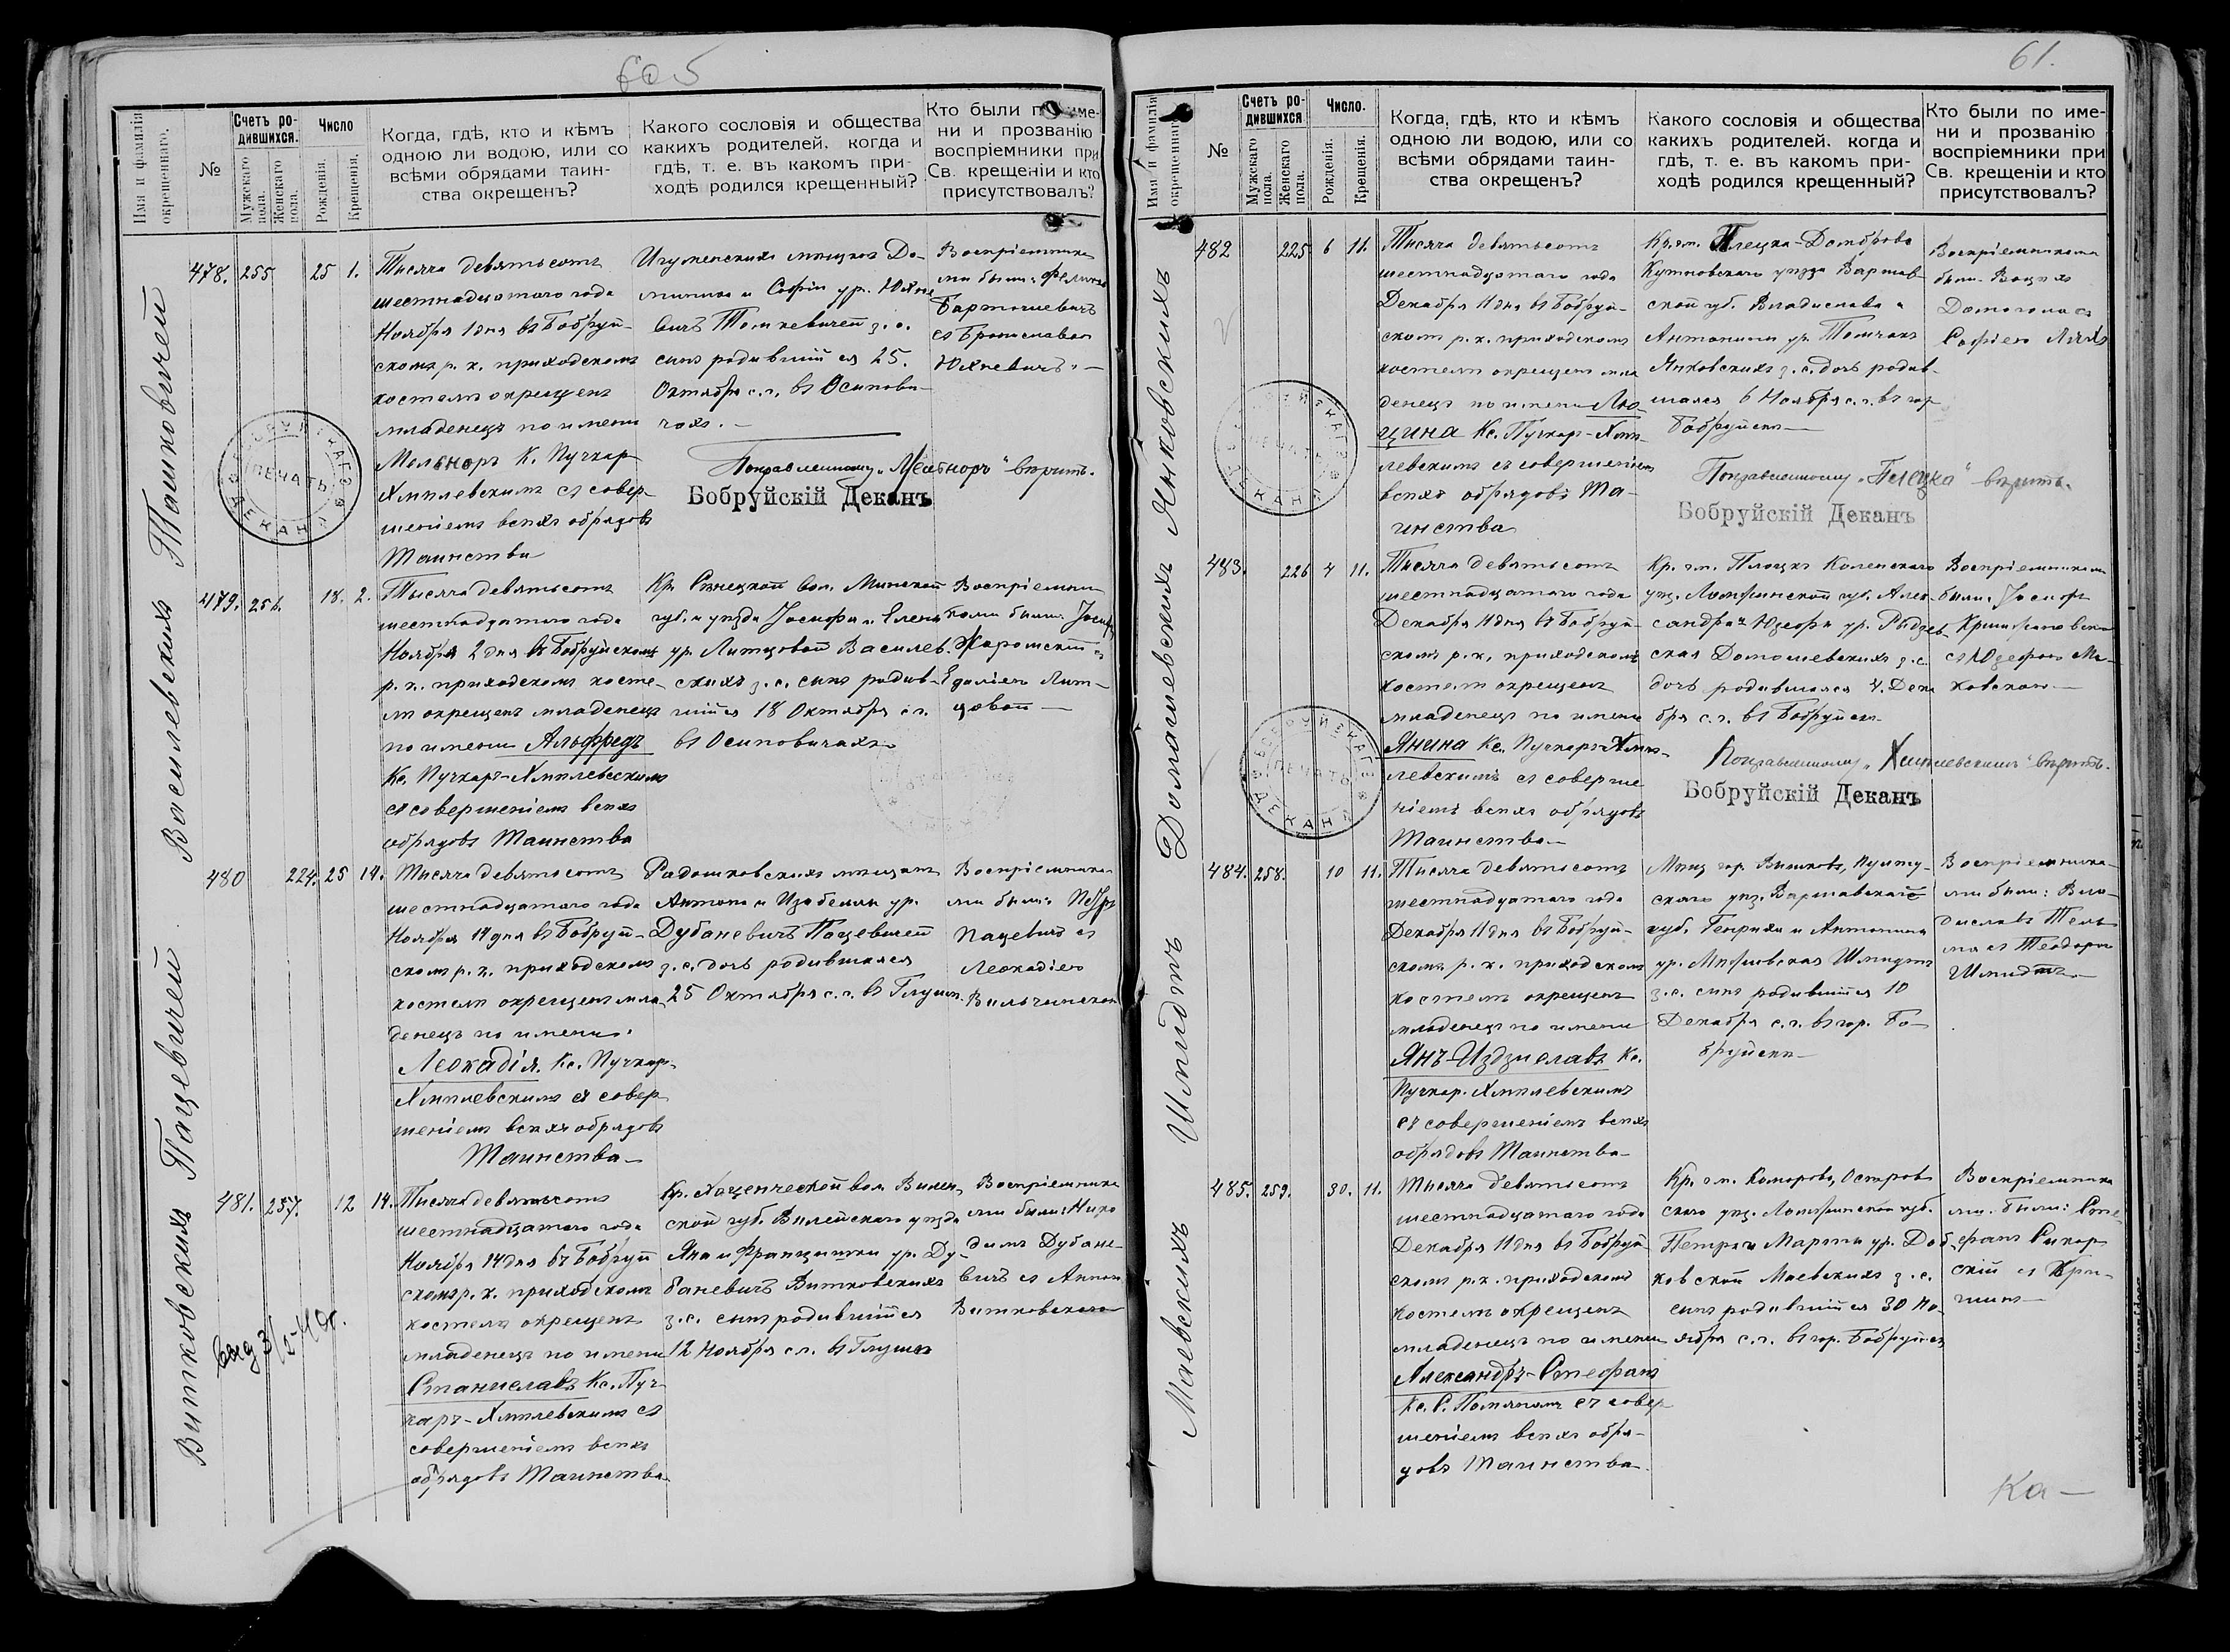 605
Имя и фамилія
окрещеннаго.
№
Счетъ ро-
дившихся.
Мужскаго
пола.
Женскаго
пола.
Число
Рожденія.
Крещенія.
Когда, гдѣ, кто и кѣмъ
одною ли водою, или со
всѣми обрядами таин-
ства окрещенъ?
Какого сословія и общества
какихъ родителей, когда и
гдѣ, т. е. въ какомъ при-
ходѣ родился крещенный?
Кто были по име-
ни и прозванію
воспріемники при
Св. крещеніи и кто
присутствовалъ?
Ташковичей
478. 255 25 1.
Тысяча девятьсотъ
шестнадцатаго года
Ноября 1 дня въ Бобруй-
скомъ р. к. приходскомъ
костелѣ окрещенъ
младенецъ по имени
Мельхіоръ К. Пучкар
Хмѣлевскимъ съ совер-
шеніемъ всѣхъ обрядовъ
Таинства
Игуменскихъ мѣщанъ До-
миника и Софіи ур. Юхне
вичъ Ташкевичей з. с.
сынъ родившійся 25.
Октября с. г. въ Осипови-
чахъ. —
Воспріемника
ми были: Феликсъ
Бартошевичъ
съ Брониславою
Юхневичъ. —
Поправленному „Мельхіоръ“ вѣрить.
Бобруйскій Деканъ
ПЕЧАТЬ
Василевскихъ
479. 256. 18. 2.
Тысяча девятьсотъ
шестнадцатаго года
Ноября 2 дня въ Бобруйскомъ
р. к. приходскомъ косте-
лѣ окрещенъ младенецъ
по имени Альфредъ
Кс. Пучкаръ-Хмѣлевскимъ
съ совершеніемъ всѣхъ
обрядовъ Таинства
Кр. Сѣнецкой вол. Минской
губ. и уѣзда Іосифа и Елены
ур. Литцовой Василев-
скихъ з. с. сынъ родив-
шійся 18 Октября с. г.
въ Осиповичахъ
Воспріемни
ками были: Іосифъ
Жаромскій съ
Лит-
цовой —
Пацевичей
480 224. 25 14.
Тысяча девятьсотъ
шестнадцатаго года
Ноября 14 дня въ Бобруй-
скомъ р. к. приходскомъ
костелѣ окрещенъ мла-
денецъ по имени
Леокадія. Кс. Пучкар-
Хмѣлевскимъ съ совер
шеніемъ всѣхъ обрядовъ
Таинства —
Радошковскихъ мѣщанъ
Антона и Изабеллы ур.
Дубаневичъ Пацевичей
з. с. дочь родившаяся
25 Октября с. г. въ Глушѣ
Воспріемника
ми были: Петръ
Пацевичъ съ
Леокадіею
Вильчинской
Витковскихъ
481. 257. 12 14.
Тысяча девятьсотъ
шестнадцатаго года
Ноября 14 дня въ Бобруй
скомъ р. к. приходскомъ
костелѣ окрещенъ
младенецъ по имени
Станиславъ Кс. Пуч-
каръ-Хмѣлевскимъ съ
совершеніемъ всѣхъ
обрядовъ Таинства
Кр. Хоценческой вол. Вилен-
ской губ. Вилейскаго уѣзда
Яна и Францишки ур. Ду-
баневичъ Витковскихъ
з. с. сынъ родившійся
12 Ноября с. г. въ Глушѣ
Воспріемника
ми были: Нико
димъ Дубане-
вичъ съ Анною
Витковскою
61.
Имя и фамилія
окрещеннаго.
№
Счетъ ро-
дившихся
Мужскаго
пола.
Женскаго
пола.
Число.
Рожденія.
Крещенія.
Когда, гдѣ, кто и кѣмъ
одною ли водою, или со
всѣми обрядами таин-
ства окрещенъ?
Какого сословія и общества
какихъ родителей, когда и
гдѣ, т. е. въ какомъ при-
ходѣ родился крещенный?
Кто были по име-
ни и прозванію
воспріемники при
Св. крещеніи и кто
присутствовалъ?
Янковскихъ
482 225 6 11.
Тысяча девятьсотъ
шестнадцатаго года
Декабря 11 дня въ Бобруй-
скомъ р. к. приходскомъ
костелѣ окрещенъ мла
денецъ по имени Лю-
цина Кс. Пучкар-Хмѣ-
левскимъ съ совершеніемъ
всѣхъ обрядовъ Та-
инства
Кр. гм. Плецка-Домброва
Кутновскаго уѣзда Варшав-
ской губ. Владислава и
Антонины ур. Томчакъ
Янковскихъ з. с. дочь родив-
шаяся 6 Ноября с. г. въ гор
Бобруйскѣ —
Воспріемниками
были: Войцѣхъ
съ
Софіею
Поправленному „Плецка“ вѣрить.
Бобруйскій Деканъ
ПЕЧАТЬ
Домашевскихъ
483. 226 4 11.
Тысяча девятьсотъ
шестнадцатаго года
Декабря 11 дня въ Бобруй-
скомъ р. к. приходскомъ
костелѣ окрещенъ
младенецъ по имени
Янина Кс. Пучкаръ-Хмѣ-
левскимъ съ соверше
ніемъ всѣхъ обрядовъ
Таинства —
Кр. гм. Плоцкъ Коленскаго
уѣз. Ломжинской губ. Алек-
сандра и Юзефы ур. Рыдзев-
ская Домашевскихъ з. с.
дочь родившаяся 4. Дека
бря с. г. въ Бобруйскѣ
Воспріемниками
были: Іосифъ
съ Юзефою Ма-
ховскою —
Поправленному „Хмѣлевскимъ“ вѣрить.
Бобруйскій Деканъ
ПЕЧАТЬ
Шмидтъ
484. 258. 10 11.
Тысяча девятьсотъ
шестнадцатаго года
Декабря 11 дня въ Бобруй-
скомъ р. к. приходскомъ
костелѣ окрещенъ
младенецъ по имени
Янъ-Издзиславъ Кс.
Пучкар. Хмѣлевскимъ
съ совершеніемъ всѣхъ
обрядовъ Таинства —
Мѣщ. гор. Вышковъ, Пулту-
скаго уѣз. Варшавской
губ. Генриха и Антонины
ур. Шмидтъ
з. с. сынъ родившійся 10
Декабря с. г. въ гор. Бо-
бруйскѣ —
Воспріемника-
ми были: Вла-
диславъ
съ Теодорою
Шмидтъ. —
Маевскихъ
485. 259. 30. 11.
Тысяча девятьсотъ
шестнадцатаго года
Декабря 11 дня въ Бобруй
скомъ р. к. приходскомъ
костелѣ окрещенъ
младенецъ по имени
Александръ-Стефанъ
Кс. С. съ совер
шеніемъ всѣхъ обря-
довъ Таинства
Кр. гм. Коморово, Островъ
скаго уѣз. Ломжинской губ.
Петра и Марты ур. Доб-
ковской Маевскихъ з. с.
сынъ родившійся 30 Но-
ября с. г. въ гор. Бобруйскѣ
Воспріемника
ми были: Сте-
фанъ Сикор
скій съ
Ка —